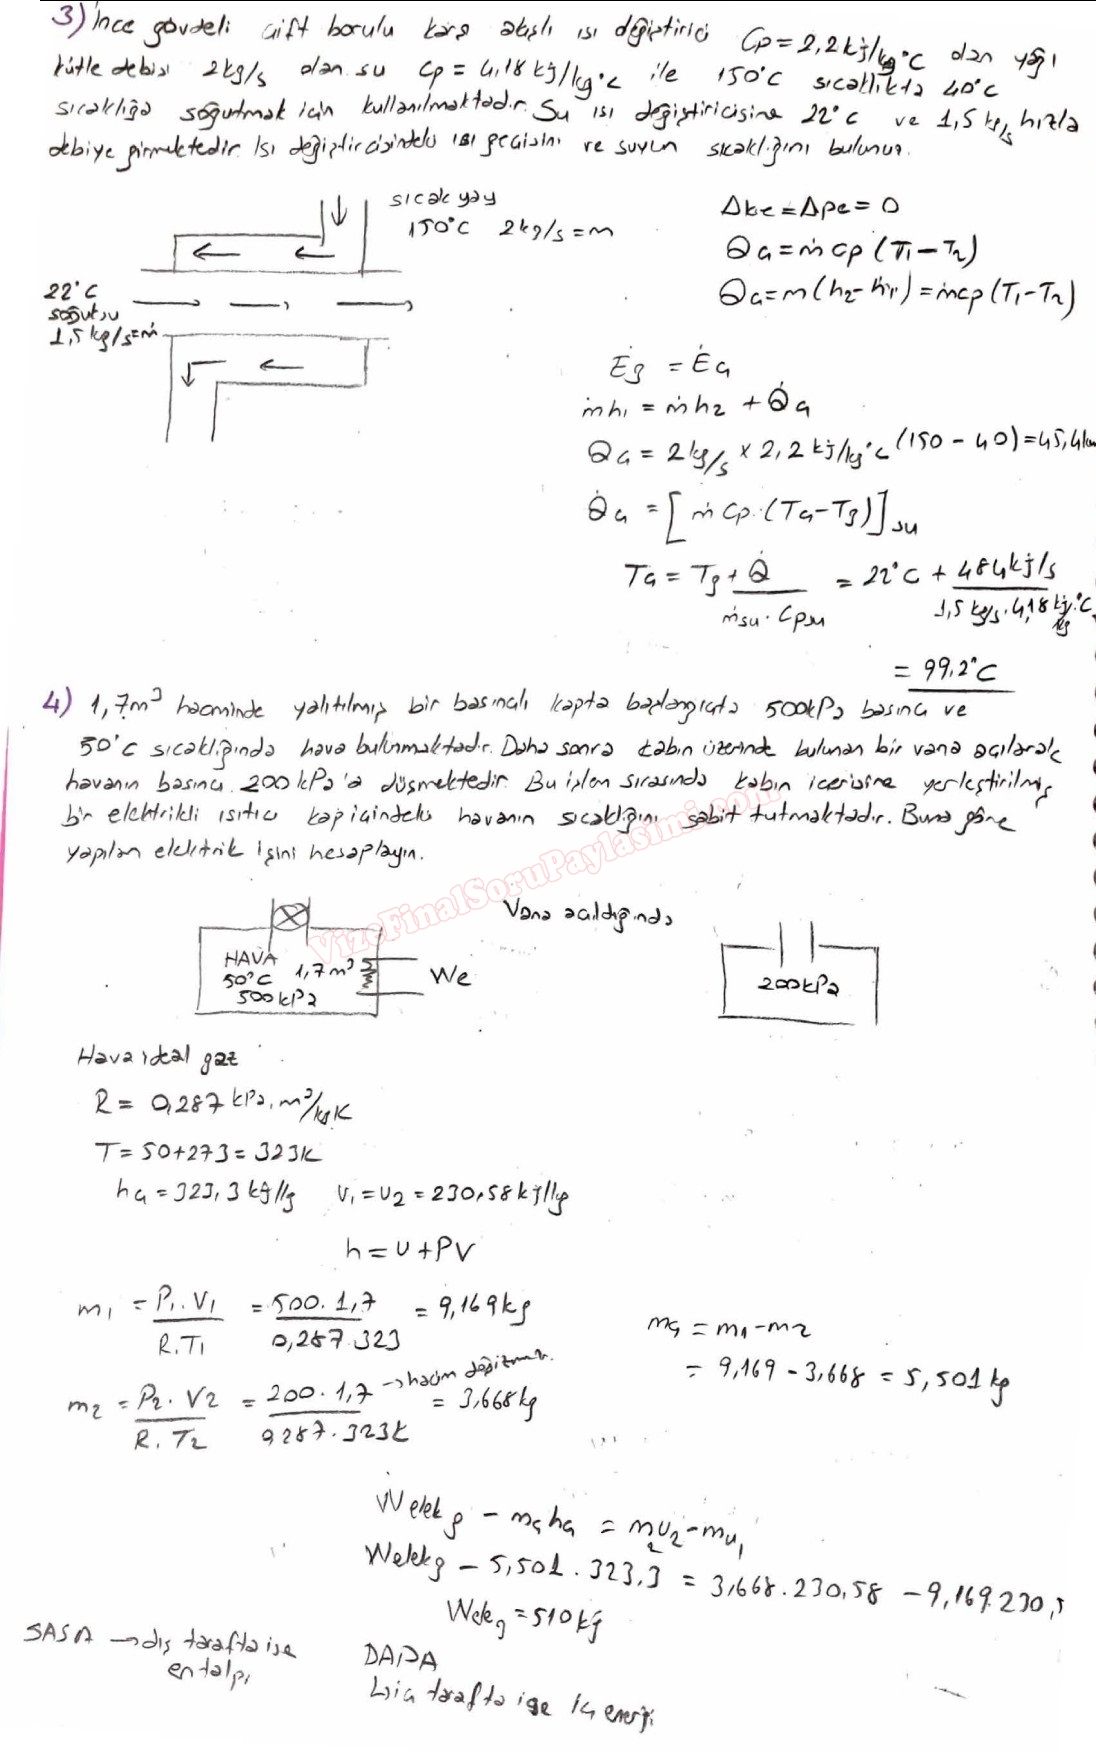 3) İnce gövdeli çift borulu karşıt akışlı ısı değiştirici Cp = 2,2 kj/kg°C olan yağı
kütle debisi 2kg/s olan su Cp = 4,18 kj/kg°C ile 150°C sıcaklıkta 40°C
sıcaklığa soğutmak için kullanılmaktadır. Su ısı değiştiricisine 22°C ve 1,5 kg/s hızla
debiye girmektedir. Isı değiştiricisindeki ısı geçişini ve suyun sıcaklığını bulunuz.
sıcak yağ
150°C 2kg/s = m
22°C
soğuk su
1,5 kg/s = ṁ
Δke = Δpe = 0
Qa = ṁ cp (T1 - T2)
Qa = m (h2 - h1) = ṁcp (T1 - T2)
Ėg = Ėa
ṁh1 = ṁh2 + Q̇a
Qa = 2kg/s x 2,2 kj/kg°C (150 - 40) = 45,4
Q̇a = [ṁ Cp. (Ta - Tg)] su
Ta = Tg + Q̇ / ṁsu . Cpsu = 22°C + 484kj/s / 1,5 kg/s . 4,18 kj/kg.°C
= 99.2°C
4) 1,7m³ hacminde yalıtılmış bir basınçlı kapta başlangıçta 500kPa basınç ve
50°C sıcaklığında hava bulunmaktadır. Daha sonra kabın üzerinde bulunan bir vana açılarak
havanın basıncı 200 kPa'a düşmektedir. Bu işlem sırasında kabın içerisine yerleştirilmiş
bir elektrikli ısıtıcı kap içindeki havanın sıcaklığını sabit tutmaktadır. Buna göre
yapılan elektrik işini hesaplayın.
VizeFinalSoruPaylasimi.com
Vana açıldığında
HAVA
50°C 1,7m³
500kPa
We
200kPa
Hava ideal gaz
R = 0,287 kPa.m³/kgK
T = 50+273 = 323K
ha = 323,3 kj/kg U1 = U2 = 230,58 kj/kg
h = U + PV
m1 = P1.V1 / R.T1 = 500.1,7 / 0,287.323 = 9,169kg
m2 = P2.V2 / R.T2 = 200.1,7 / 0,287.323K → hacim değişmez. = 3,668kg
ma = m1 - m2
= 9,169 - 3,668 = 5,501 kg
Welek g - ma ha = m2u2 - mu1
Welekg - 5,501 . 323,3 = 3,668 . 230,58 - 9,169.230,5
Welekg = 510 kj
SASA → dış tarafta ise
entalpi
DADA
↳ iç tarafta ise iç enerji